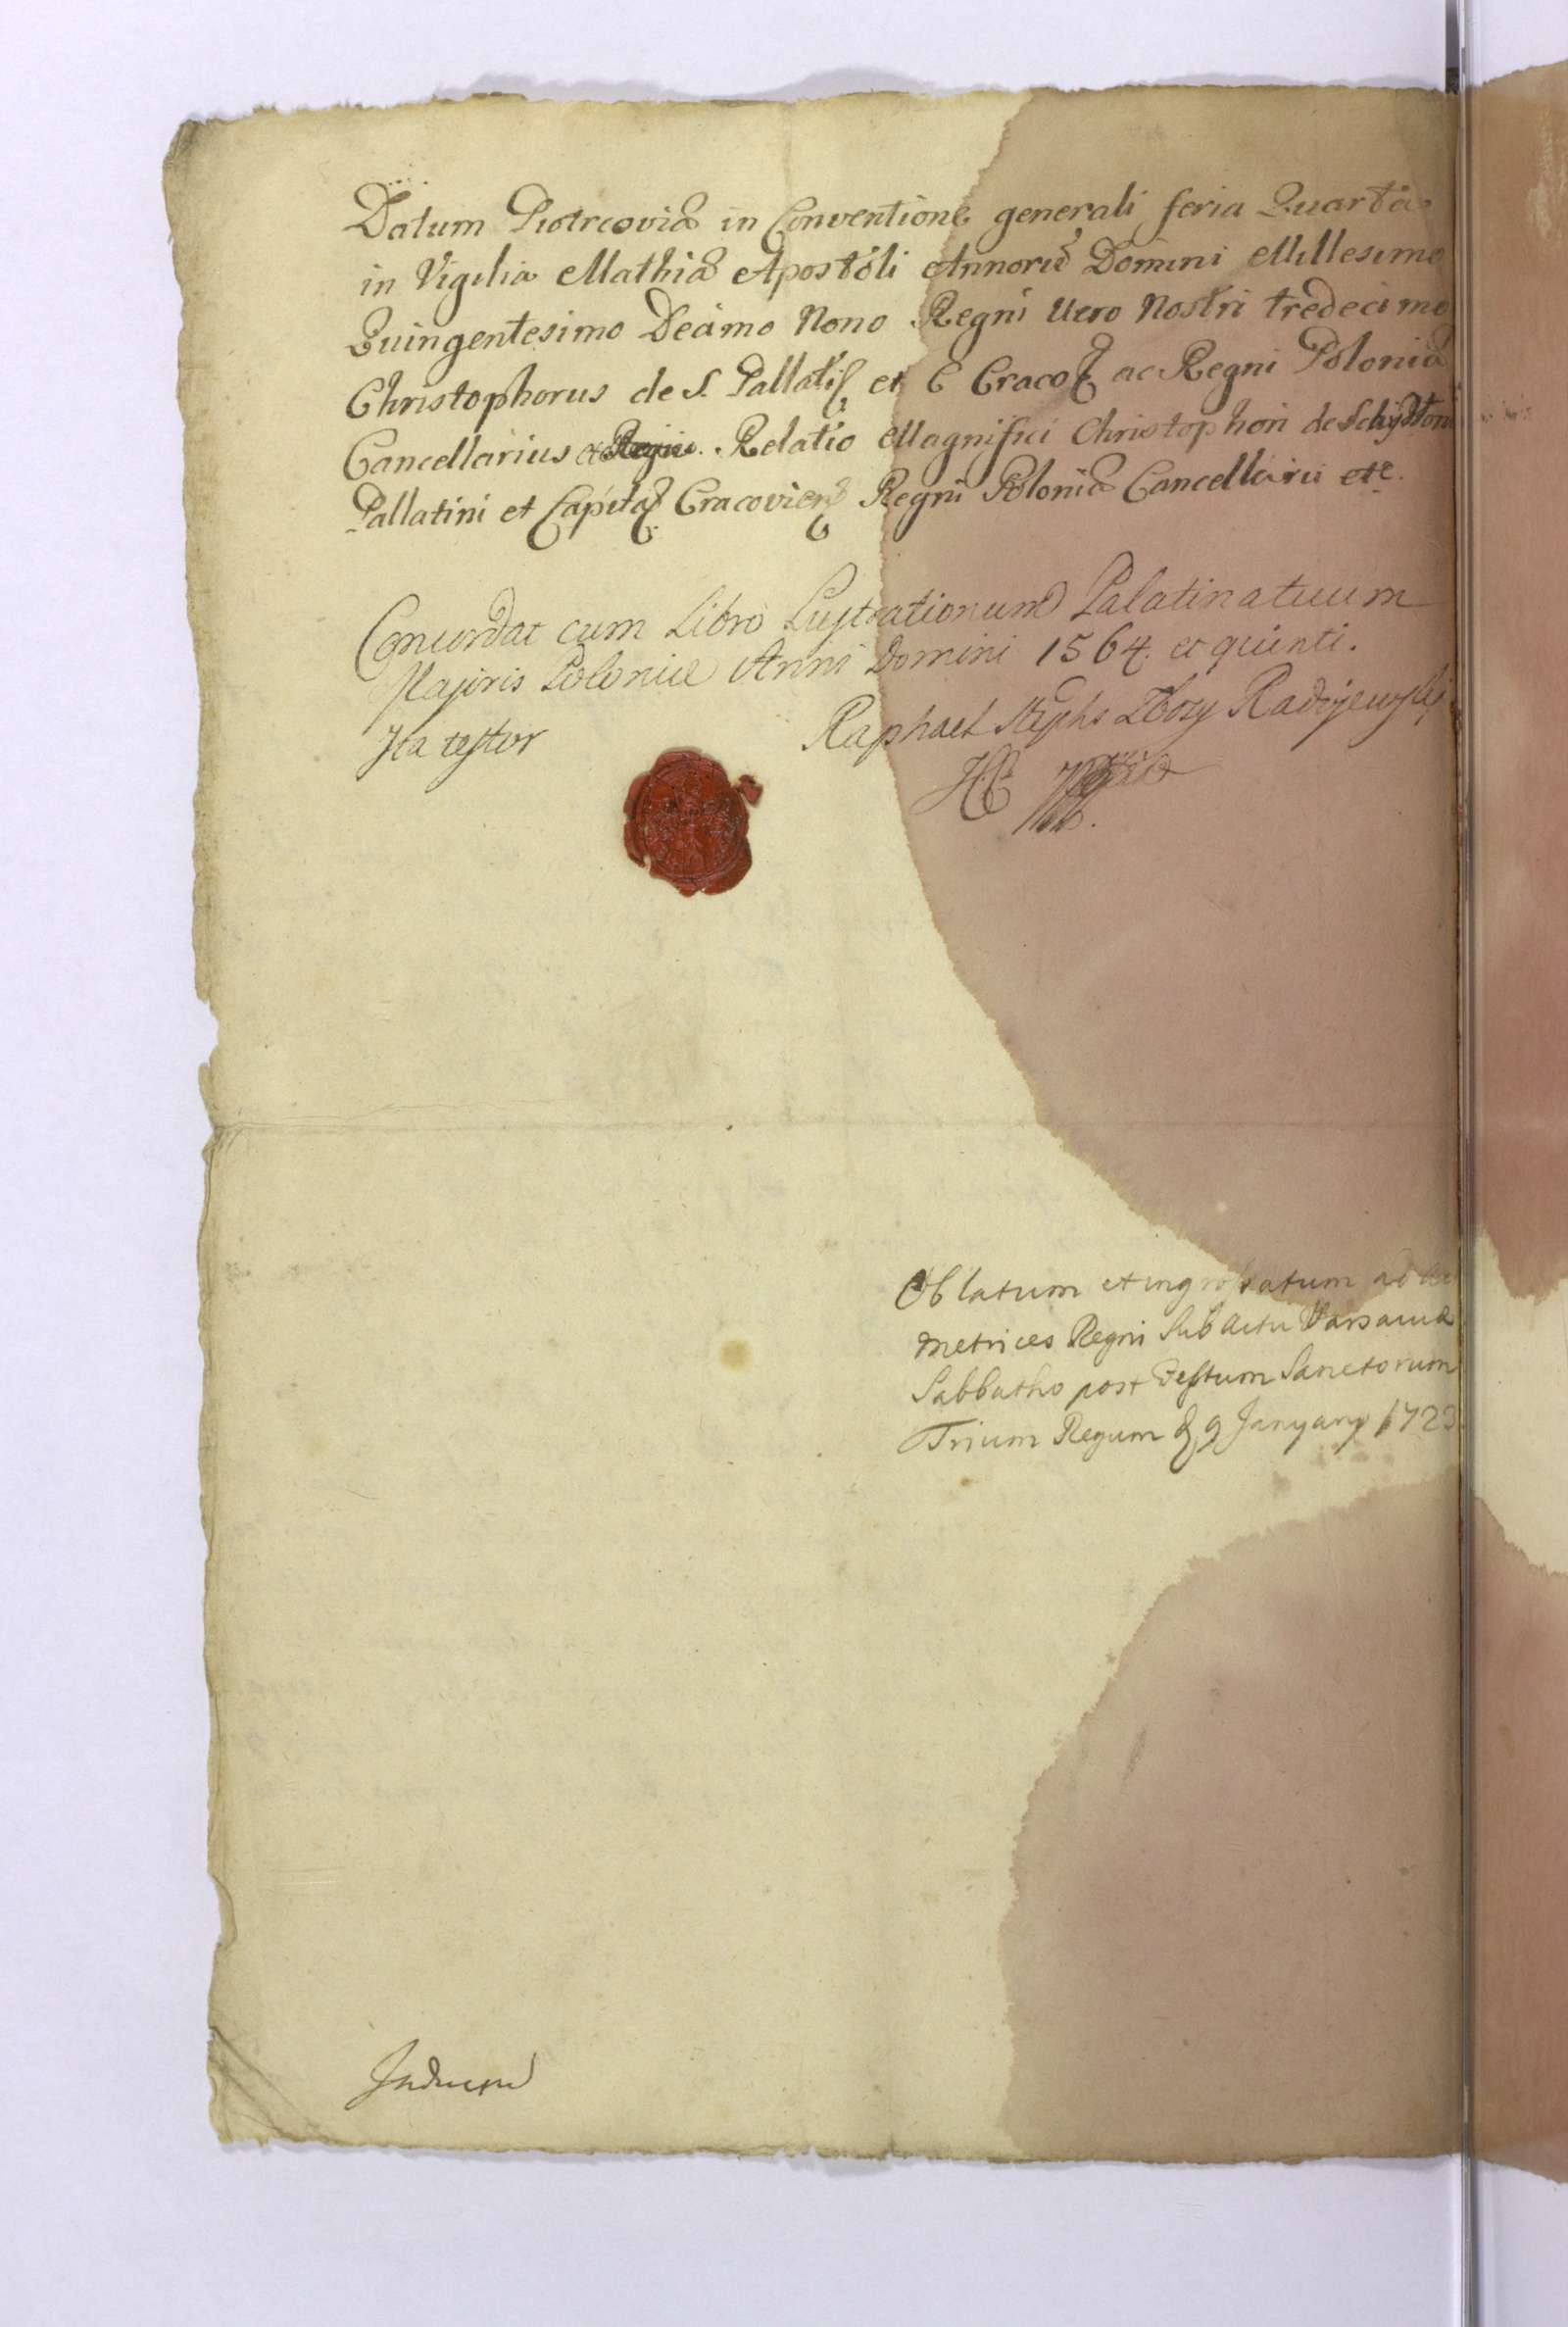 Datum Piotrcoviæ in Conventione generali feria Quarta
in Vigilia Mathiæ Apostoli Annorũ Domini Millesimo
Quingentesimo Decimo Nono Regni Vero Nostri tredecimo
Christophorus de S. Pallati et C Craco ac Regni Poloniæ
Cancellarius Relatio Magnifici Christophori de Schydłow
Pallatini et Capita Cracovien Regni Poloniæ Cancellarii etc.
Concordat cum Libro Lustrationum Palatinatuum
Majoris Poloniæ Anni Domini 1564. et quinti.
Ita testor
Raphael Stephs Zbozy Radojewski
Oblatum et ingrossatum ad
Metrices Regni Sub Actu Varsaviæ
Sabbatho post Festum Sanctorum
Trium Regum 9 January 1723